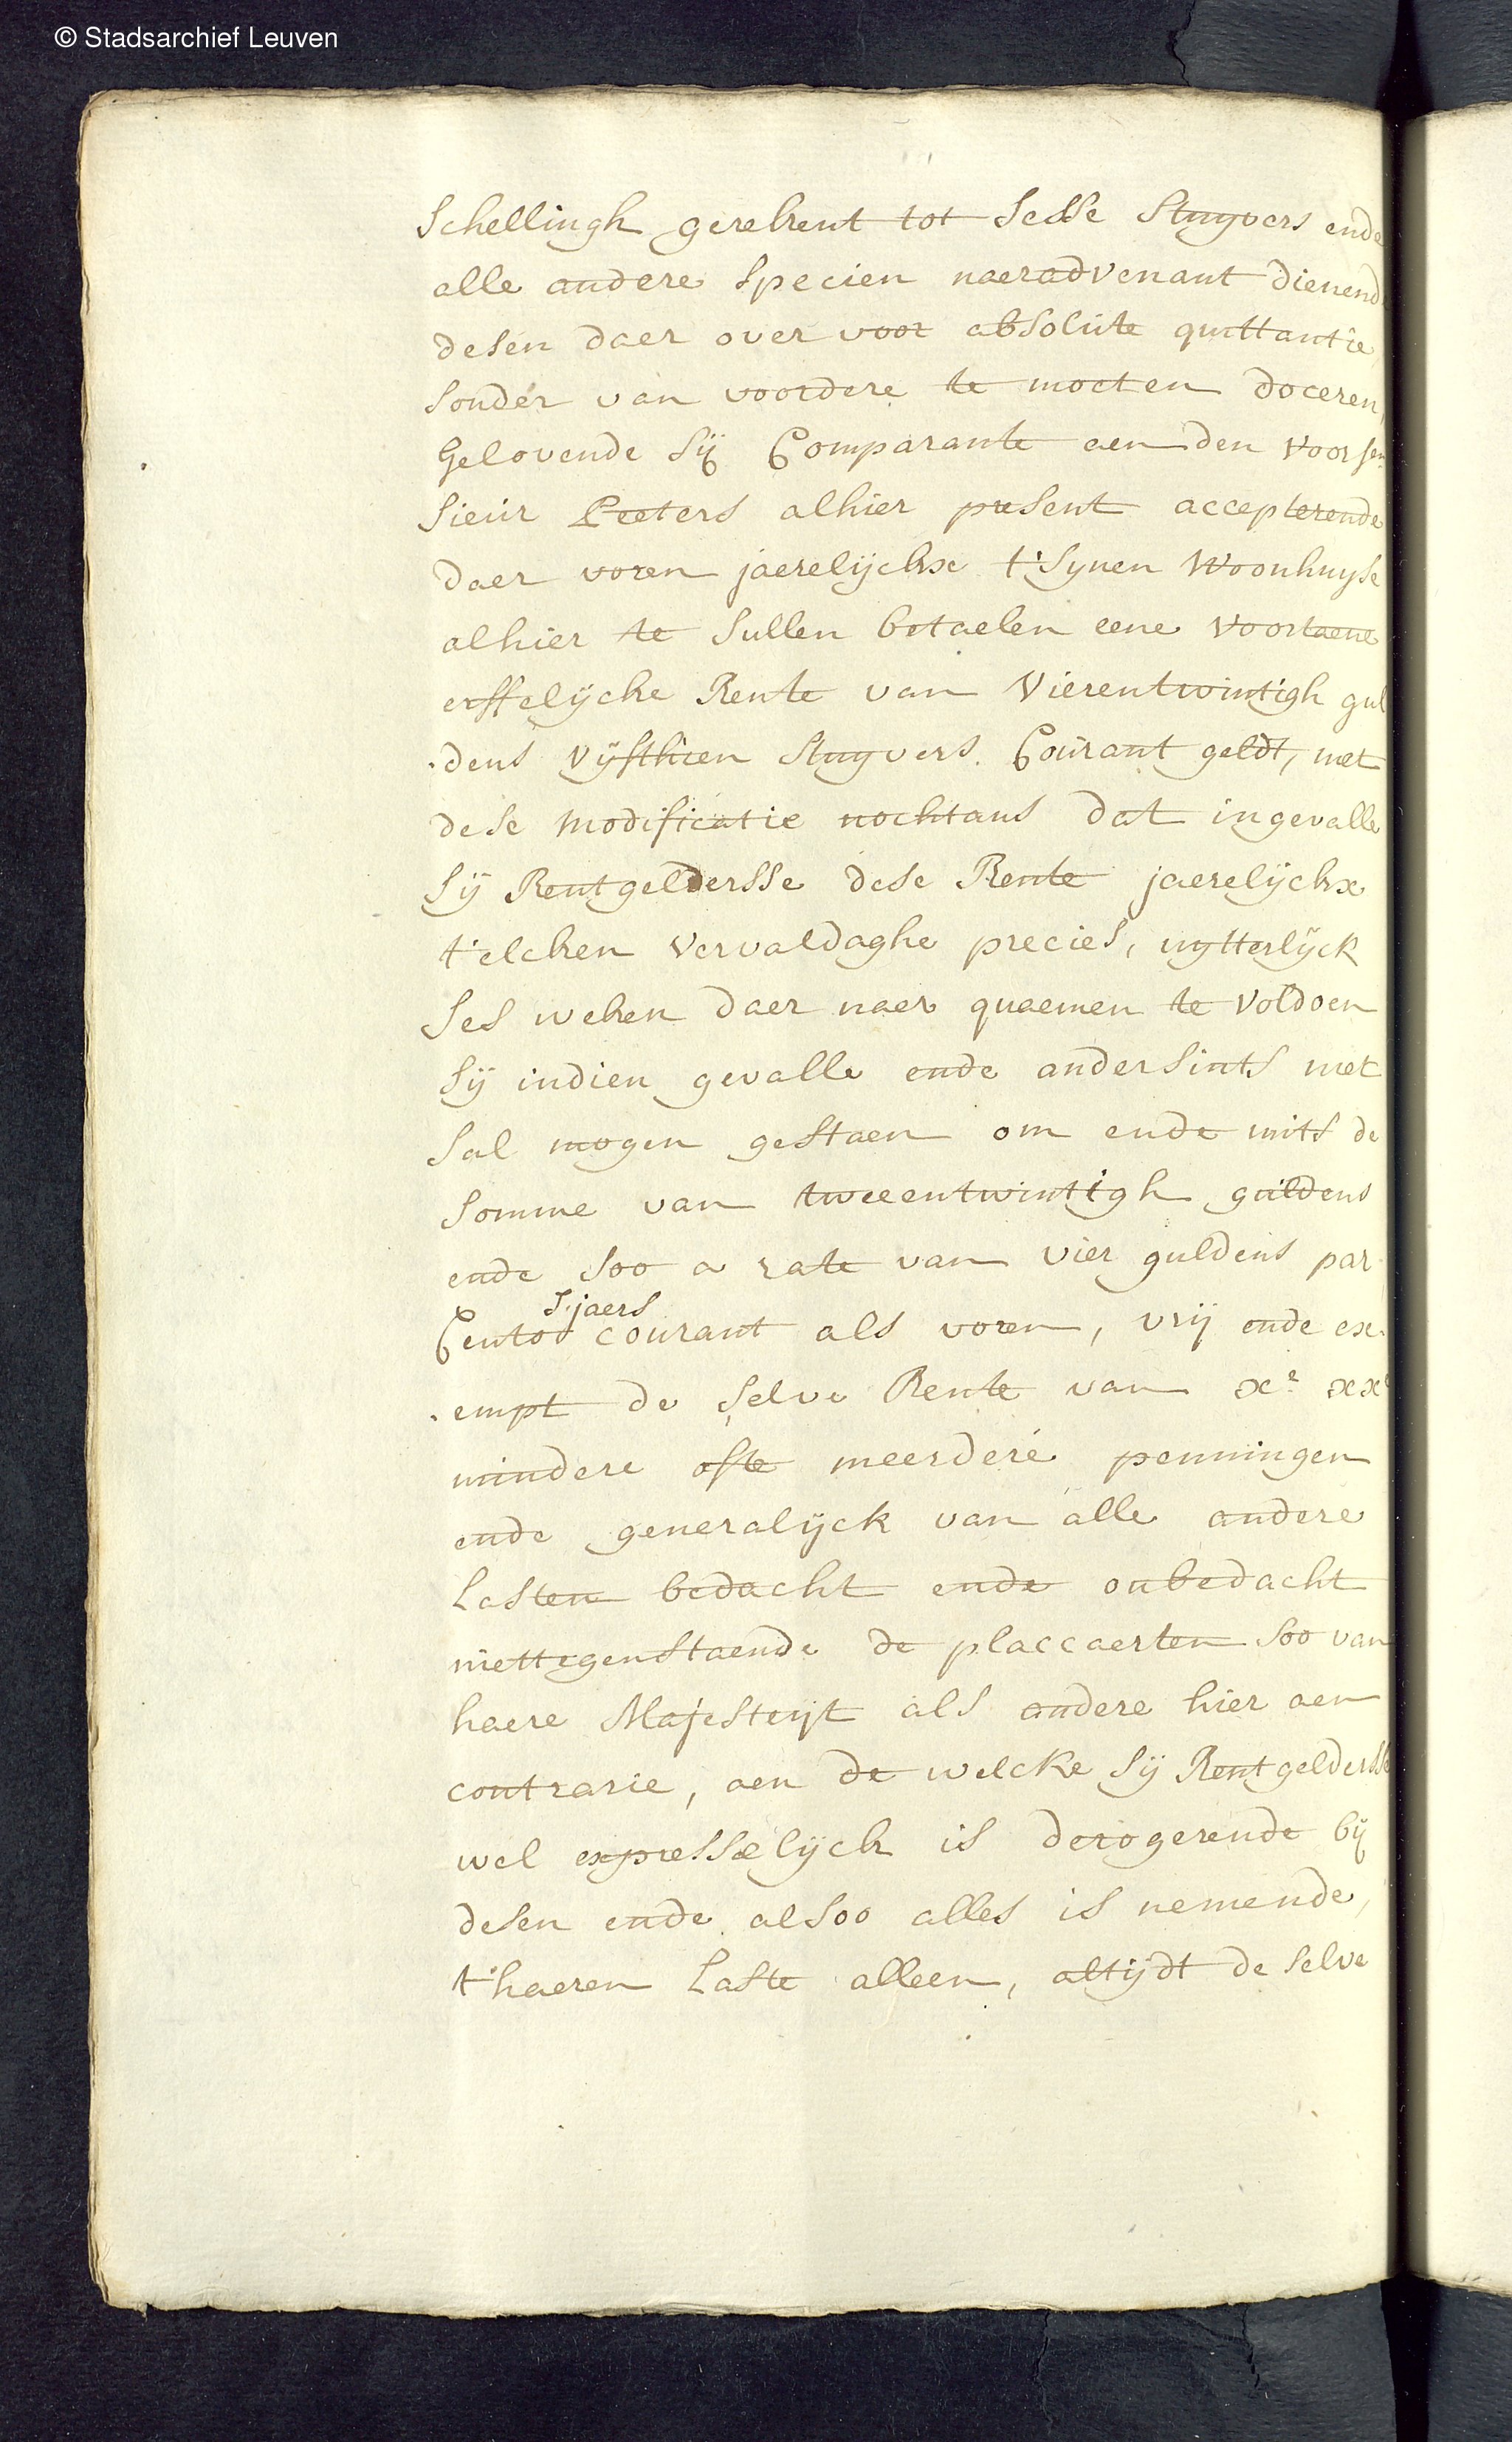 © Stadsarchief Leuven
Schellingh gerekent tot Sesse Stuyvers ende
alle andere Specien naeradvenant dienende
desen daer over voor absolute quittantie
Sonder van voordere te moeten doceren,
Gelovende Sij Comparante aen den voors:en
Sieur Peeters alhier present accepterende
daer voren jaerelijckx t'Synen Woonhuyse
alhier te Sullen betaelen eene voortaene
erffelijcke Rente van Vierentwintigh gul
dens vijfthien Stuyvers Courant geldt, met
dese modificatie nochtans dat ingevalle
Sij Rentgeldersse dese Rente jaerelijckx
t'elcken vervaldaghe precies, uytterlijck
Ses weken daer naer quaemen te voldoen
Sij indien gevalle ende andersints niet
Sal mogen gestaen om ende mits de
Somme van tweeentwintigh guldens
ende Soo a rate van vier guldens par
S'jaers
Cento courant als voren, vrij ende ex-
empt de Selve Rente van xe xxe
mindere ofte meerdere penningen
ende generalijck van alle andere
Lasten bedacht ende onbedacht
niettegenstaende de placcaerten Soo van
haere Majesteyt als andere hier aen
contrarie, aen de welcke Sij Rentgeldersse
wel expresselijck is derogerende bij
desen ende alsoo alles is nemende,
t'haeren Laste alleen, altijdt de Selve